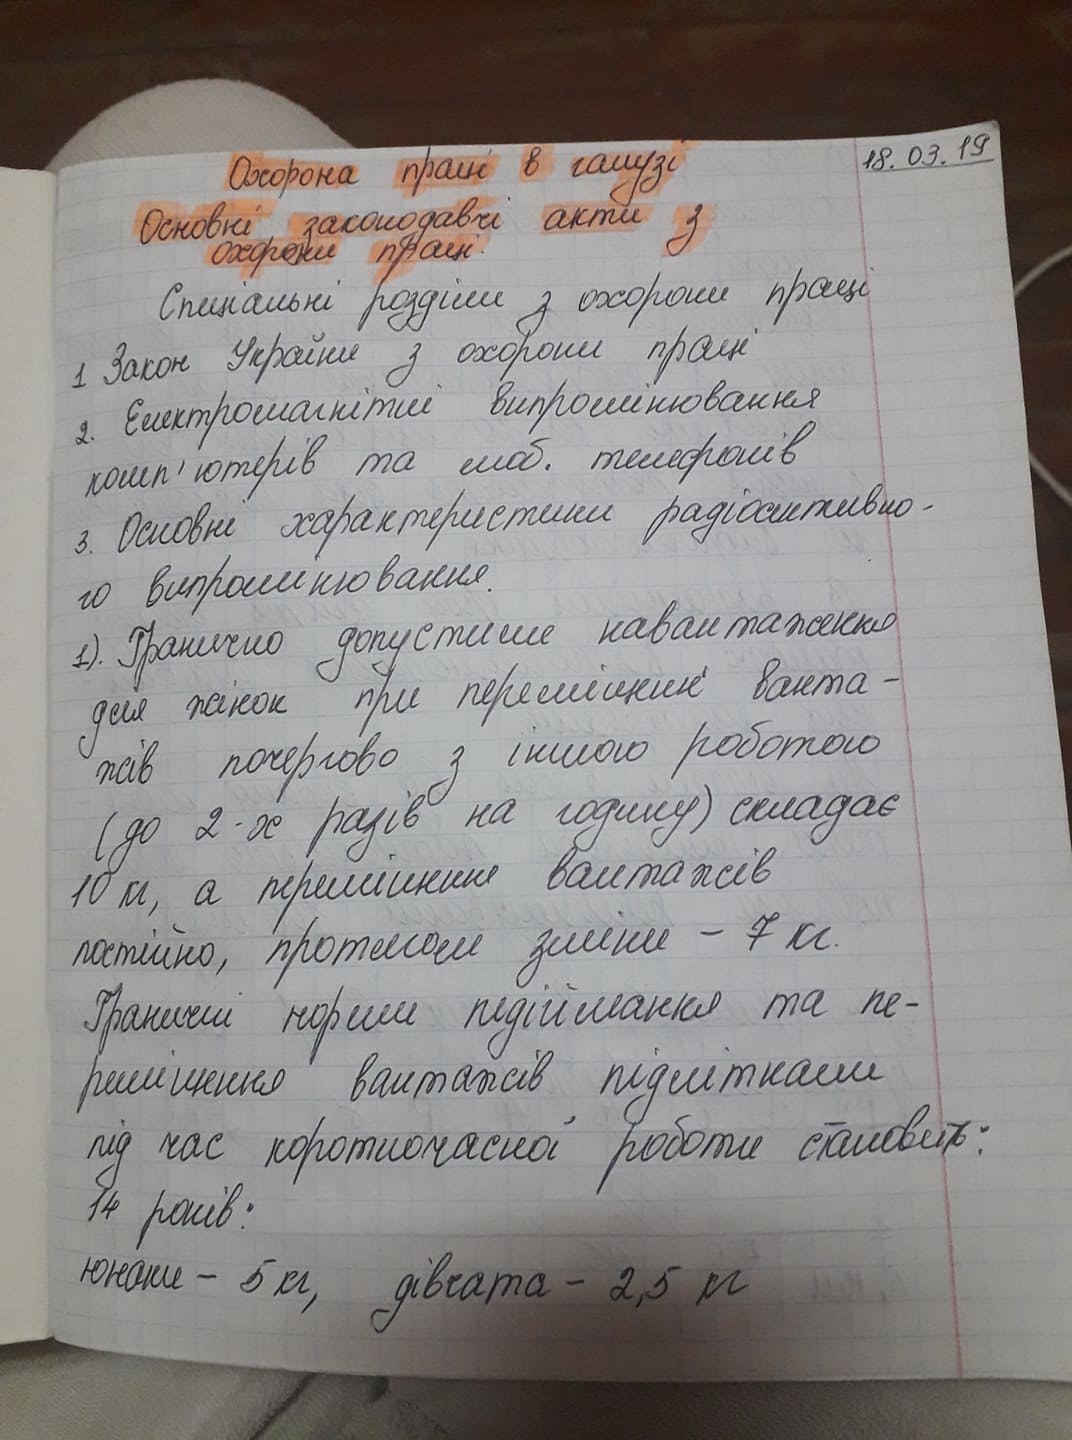 18.03.19
Охорона праці в галузі
Основні законодавчі акти з
охорони праці.
Спеціальні розділи з охорони праці
1 Закон України з охорони праці
2. Електромагнітні випромінювання
комп'ютерів та моб. телефонів
3. Основні характеристики радіоактивно-
го випромінювання.
1). Гранично допустиме навантаження
для жінок при переміщенні ванта-
жів почергово з іншою роботою
(до 2-х разів на годину) складає
10 кг, а переміщення вантажів
постійно, протягом зміни - 7 кг.
Граничні норми підіймання та пе-
реміщення вантажів підлітками
під час короткочасної роботи становить:
14 років:
юнаки - 5 кг, дівчата - 2,5 кг